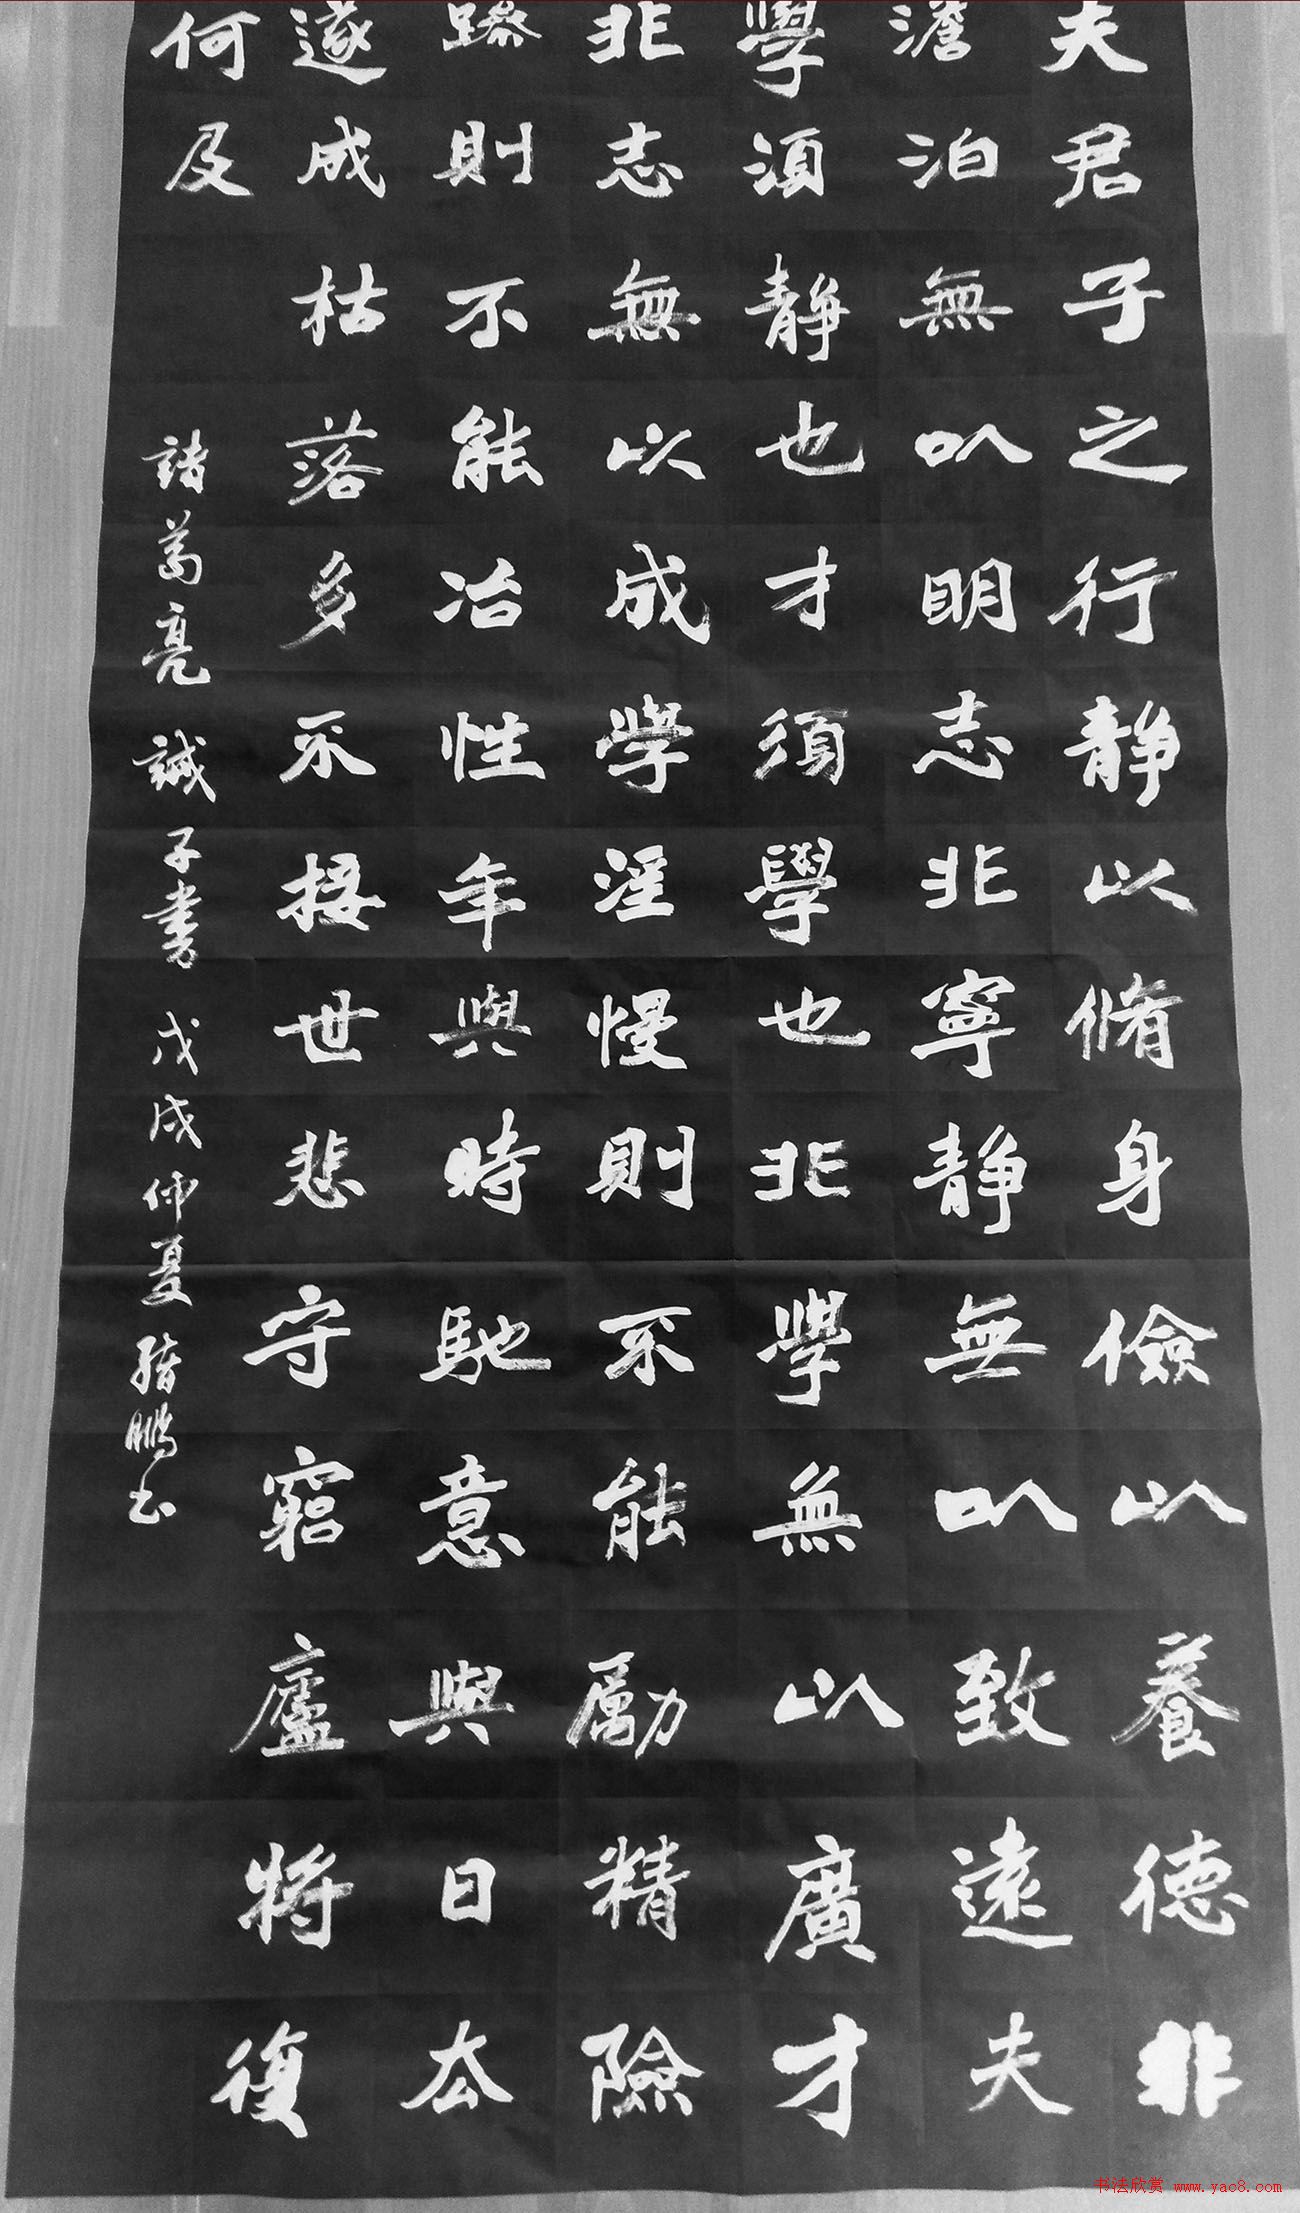 夫君子之行静以脩身儉以養德非
澹泊無以明志非寧静無以致遠夫
學須静也才須學也非學無以廣才
非志無以成學淫慢則不能勵精險
躁則不能冶性年與時馳意與日去
遂成枯落多不接世悲守窮廬將復
何及
諸葛亮誡子書戊戌仲夏鵬書
书法欣赏 www.yac8.com